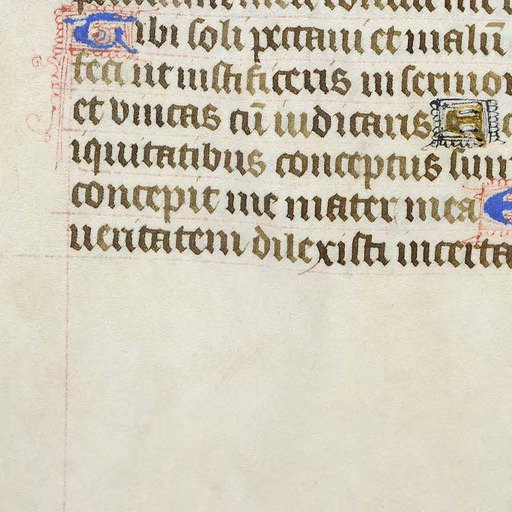 Tibi soli peccaui et malū
feci ut iustificeris in sermon
et vincas cū iudicaris E
iquitatibus conceptus sum
concepit me mater mea E
ueritatem dilexisti incerta